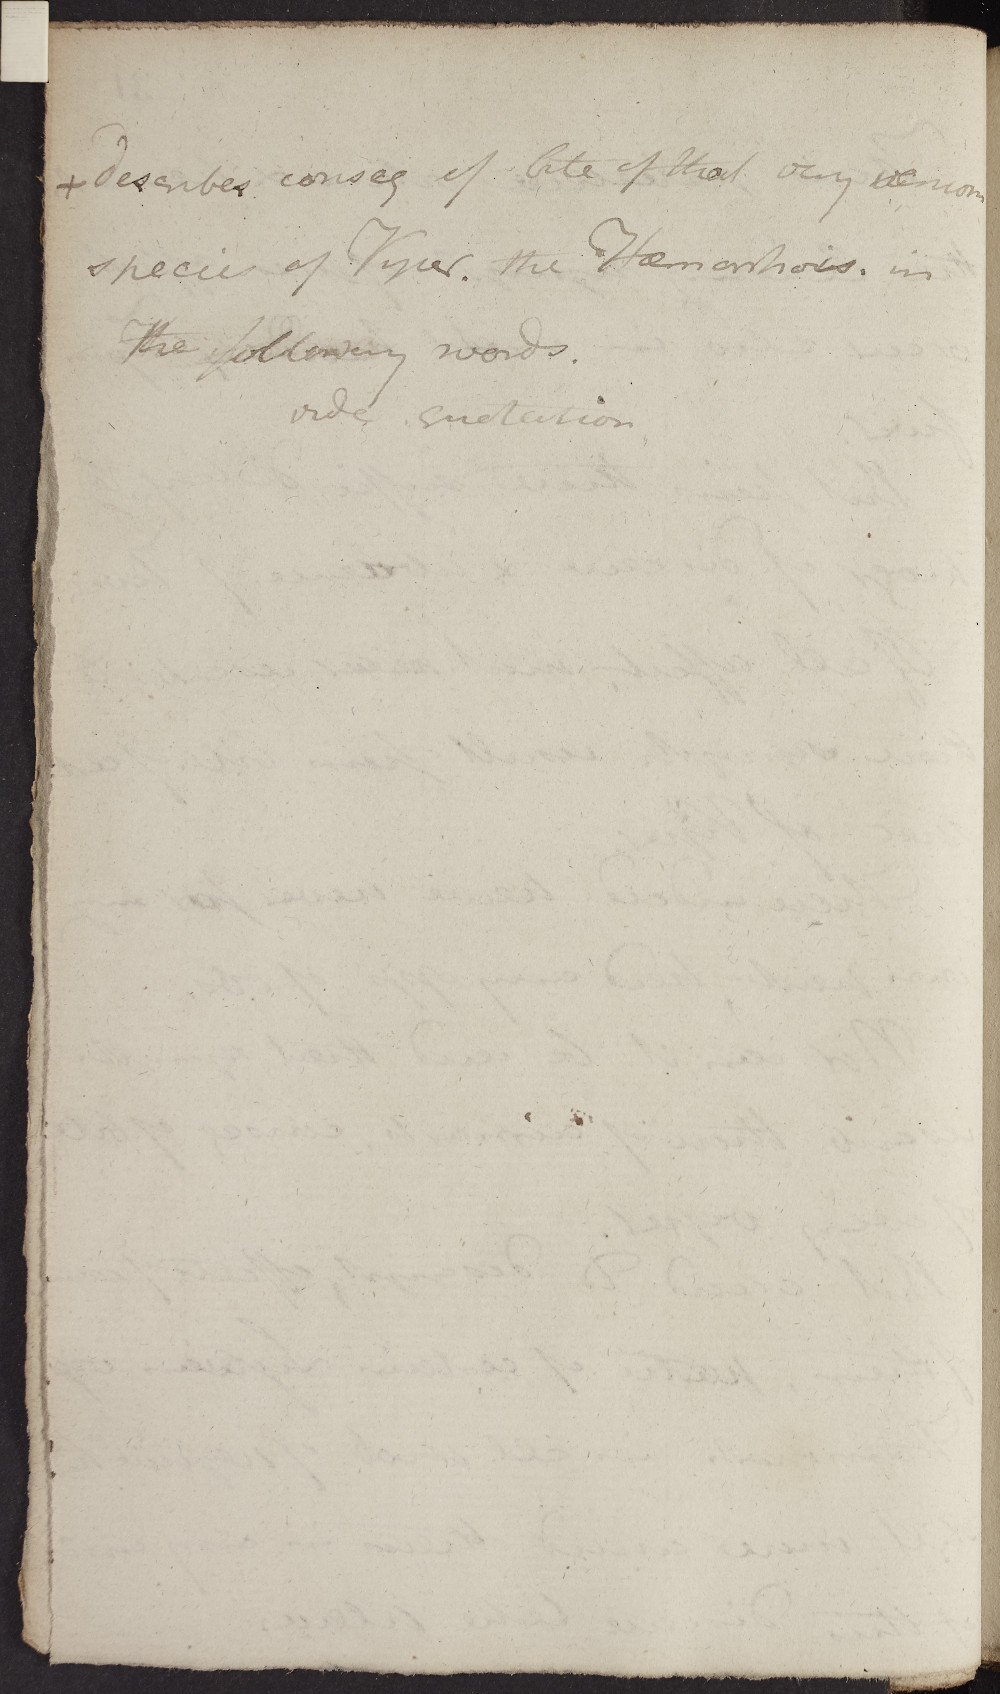 + describes conseq of bite of that very venom
species of Viper. the Hæmorrhois. in
the following words.
vide quotation